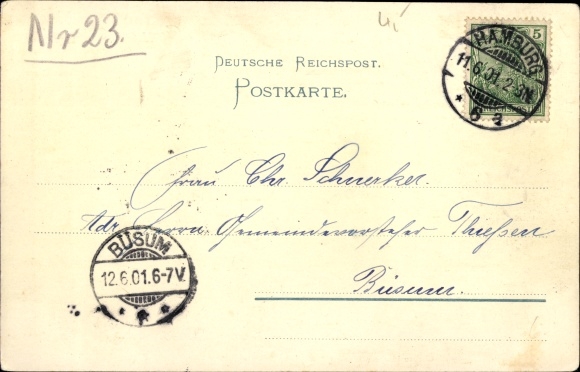 Nr 23.
5
HAMBURG
11.6.01.2-3N.
* 6 a *
DEUTSCHE REICHSPOST.
POSTKARTE.
Frau Chr. Schnerker.
Adr Herrn Gemeindevorsteher Thießen
Büsum.
BÜSUM
12.6.01.6-7V.